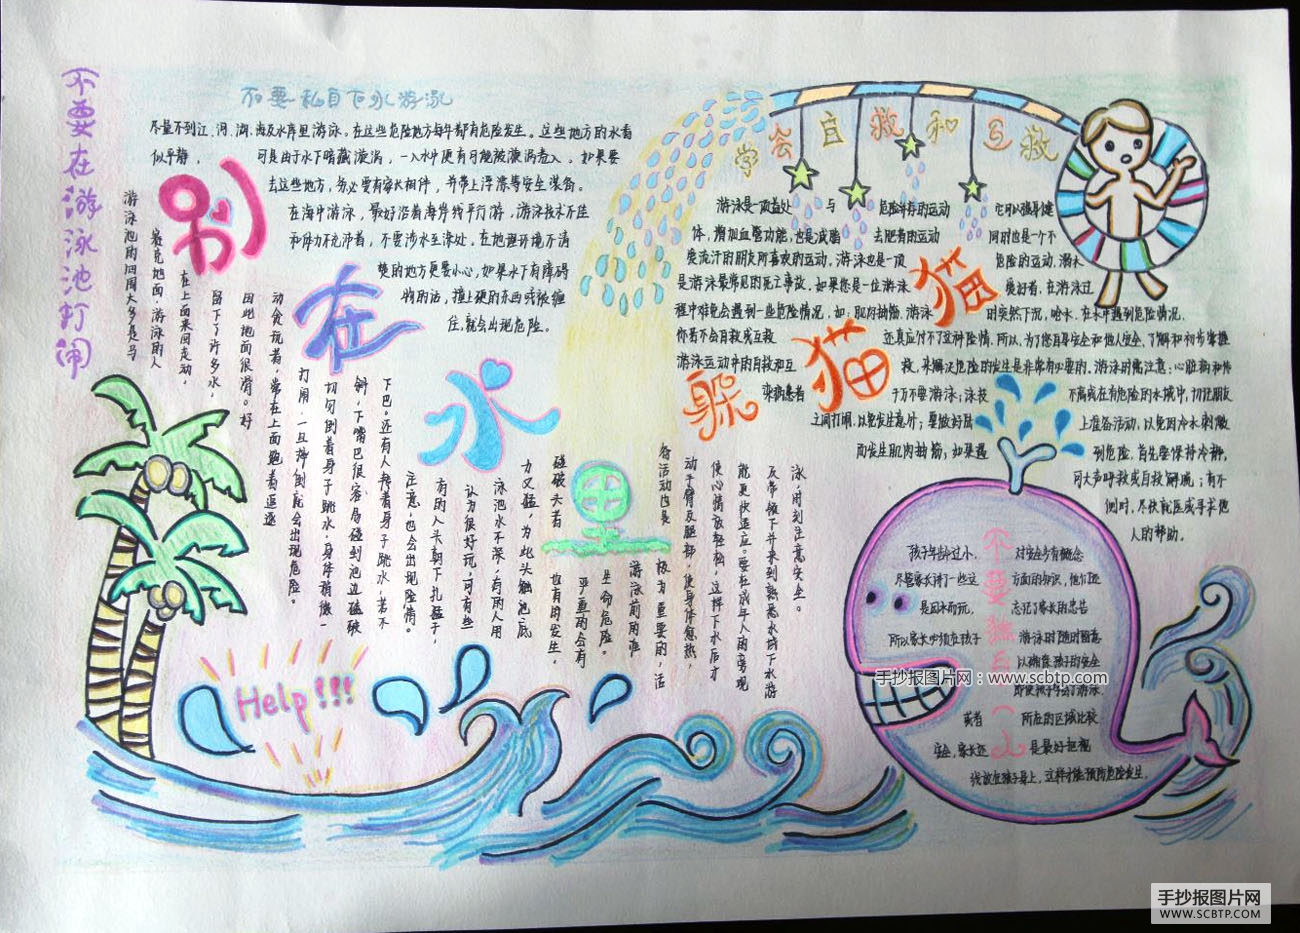 不要在游泳池打闹
不要私自下水游泳
尽量不到江、河、湖、海及水库里游泳。在这些危险地方每年都有危险发生。这些地方的水看
似平静，可是由于水下暗藏漩涡，一入水中便有可能被漩涡卷入。如果要
去这些地方，务必要有家长相伴，并带上浮漂等安全装备。
在海中游泳，最好沿着海岸线平行游，游泳技术不佳
和体力不充沛者，不要涉水至深处。在地理环境不清
楚的地方更要小心，如果水下有障碍
物的话，撞上硬的东西或被缠
住，就会出现危险。
别在水中躲猫猫
游泳池的四周大多是与
瓷砖地面，游泳的人
在上面来回走动，
留下了许多水，
因此地面很滑。好
动贪玩者，常在上面跑着追逐
打闹，一旦摔倒就会出现危险。
切勿倒着身子跳水，身体稍微一
斜，下嘴巴很容易碰到池边磕破
下巴。还有人接着身子跳水，若不
注意，也会出现险情。
有的人头朝下扎猛子，
认为很好玩，可有些
泳池水不深，有的人用
力又猛，为此头触池底
碰破头者
也有的发生，
严重的会有
生命危险。
游泳前的准
备活动也是
极为重要的，活
动手臂及腿部，使身体愈热，
使心情放轻松，这样下水后才
能更快适应。要在成年人的旁观
及带领下并来到熟悉水域下水游
泳，时刻注意安全。
学会自救和互救
游泳是一项益处与危险并存的运动
它可以强身健
体，增加血管功能，也是减脂去肥者的运动
同时也是一个不
爱流汗的朋友所喜欢的运动。游泳也是一项
危险的运动，溺水
是游泳最常见的死亡事故，如果您是一位游泳
爱好者，在游泳过
程中难免会遇到一些危险情况，如：肌肉抽筋，游泳
时突然下沉，呛水，在水中遇到危险情况，
你若不会自救或互救
还真应付不了这种险情。所以，为了您自身安全和他人安全，了解和初步掌握
游泳运动中的自救和互
救，来解决危险的发生是非常有必要的。游泳时需注意：心脏病和传
染病患者
千万不要游泳；泳技
不高或在有危险的水域中，切记朋友
之间打闹，以免发生意外；要做好陆
上准备活动，以免因冷水刺激
而发生肌肉抽筋；如果遇
到危险，首先要保持冷静，
可大声呼救或自救解脱；有不
侧时，尽快就医或寻求他
人的帮助。
不要独自
孩子年龄过小，对安全少有概念
尽管家长讲了一些这方面的知识，他们还
是因水而玩，忘记了家长的忠告
所以家长必须在孩子游泳时随时留意
以确保孩子的安全
即使孩子学会了游泳，
或者所在的区域比较
安全，家长还是最好把视
线放在孩子身上，这样才能预防危险发生。
Help!!!
手抄报图片网：www.scbtp.com
手抄报图片网
WWW.SCBTP.COM